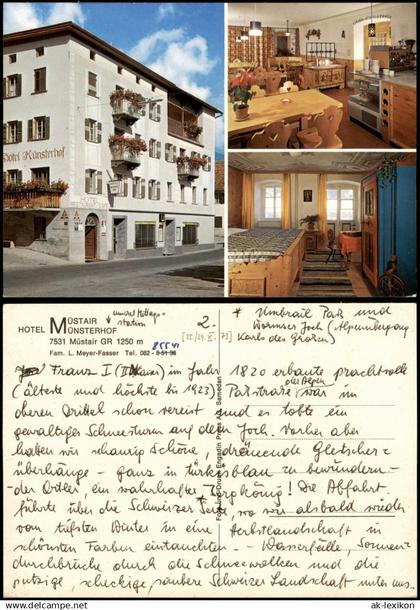 Hotel Münsterhof
MÜSTAIR
HOTEL MÜNSTERHOF
7531 Müstair GR 1250 m
Fam. L. Meyer-Fasser Tel. 082 - 8 51 98
station
2.
* Umbrail Paß und
Wormser Joch (Alpenübergang
Karls des Großen)
Franz I im Jahr 1820 erbaute prachtvolle
(älteste und höchste bis 1923) Paßstraße war im
oberen Drittel schon vereist und es tobte ein
gewaltiger Schneesturm auf dem Joch. Vorher aber
hatten wir schaurig schöne, dräuende Gletscher=
überhänge - ganz in türkisblau zu bewundern -
- der Ortler, ein wahrhafter Bergkönig! Die Abfahrt
führte über die Schweizer Seite, wo wir alsbald wieder
vom tiefsten Winter in eine Herbstlandschaft in
schönsten Farben eintauchten - - Wasserfälle, Sonnen=
durchbrüche durch die Schneewolken und die
putzige, scheckige, saubere Schweizer Landschaft unter uns.
© ak-lexikon